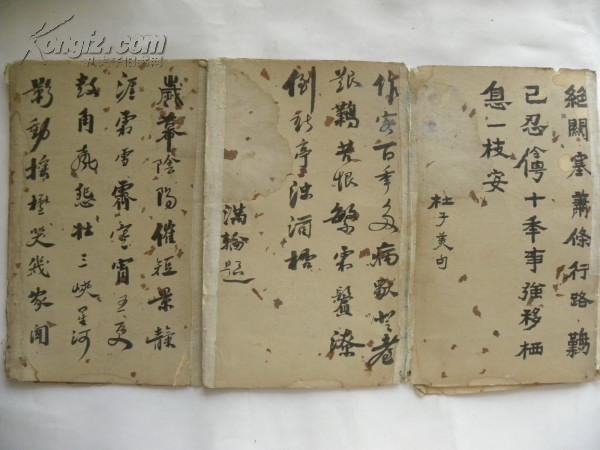 絕關塞蕭條行路難
已忍伶俜十季事強移栖
息一枝安
杜子美句
作客百年多病獨登臺
艱難苦恨繁霜鬢潦
倒新亭浊酒桮
題
歲暮陰陽催短景靝
涯霜雪霽寒宵五更
鼓角聲悲壯三峽星河
影動搖埜哭幾家聞
Kongfz.com
孔夫子旧书网